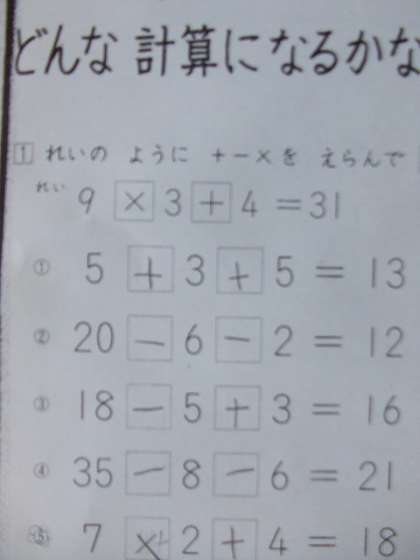 どんな 計算に なるかな
1 れいの ように ＋－×を えらんで
れい 9 × 3 + 4 = 31
① 5 + 3 + 5 = 13
② 20 - 6 - 2 = 12
③ 18 - 5 + 3 = 16
④ 35 - 8 - 6 = 21
⑤ 7 × 2 + 4 = 18